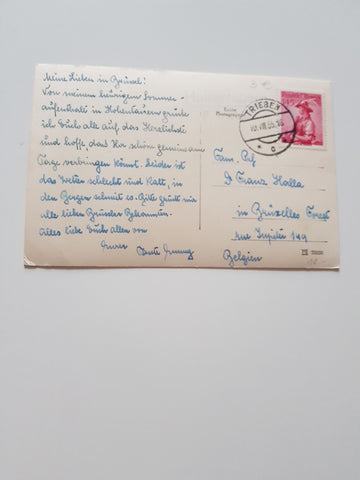 Meine Lieben in Brüssel!
Von meinem heurigen Sommer-
aufenthalt in Hohentauern grüße
ich Euch alle auf das Herzlichste
und hoffe, dass Ihr schön gemeinsam
Tage verbringen könnt. Leider ist
das Wetter schlecht und kalt, in
den Bergen schneit es. Bitte grüßt mir
alle lieben Brüssler Bekannten.
Alles liebe Euch allen von
Eurer
Tante
TRIEBEN
Echte
Fam.
Franz Holla
in Bruxelles Forest
rue Jupiter 149
Belgien